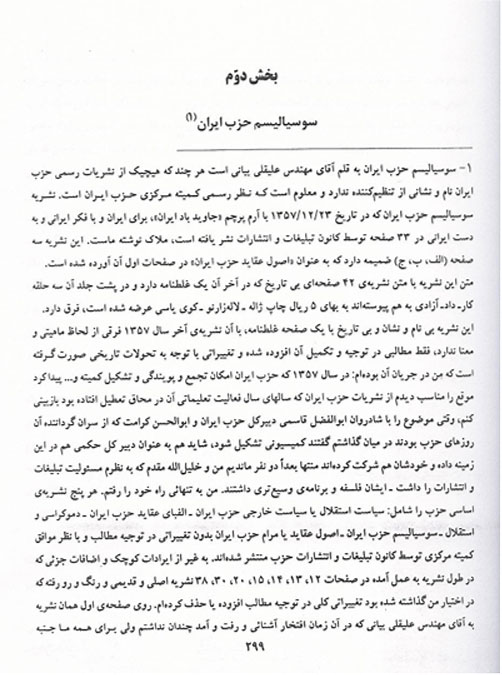 بخش دوّم
سوسیالیسم حزب ایران (۱)
۱- سوسیالیسم حزب ایران به قلم آقای مهندس علیقلی بیانی است هر چند که هیچیک از نشریات رسمی حزب
ایران نام و نشانی از تنظیم‌کننده ندارد و معلوم است که نظر رسمی کمیته مرکزی حزب ایران است. نشریه
سوسیالیسم حزب ایران که در تاریخ ۱۳۵۷/۱۲/۲۳ با آرم پرچم «جاوید باد ایران»، برای ایران و با فکر ایرانی و به
دست ایرانی در ۳۳ صفحه توسط کانون تبلیغات و انتشارات نشر یافته است، ملاک نوشته ماست. این نشریه سه
صفحه (الف، ب، ج) ضمیمه دارد که به عنوان «اصول عقاید حزب ایران» در صفحات اول آن آورده شده است.
متن این نشریه با متن نشریه‌ی ۴۲ صفحه‌ای بی تاریخ که در آخر آن یک غلطنامه دارد و در پشت جلد آن سه حلقه
کار-داد-آزادی به هم پیوسته‌اند به بهای ۵ ریال چاپ ژاله - لاله‌زارنو - کوی یاسی عرضه شده است، فرق دارد.
این نشریه بی نام و نشان و بی تاریخ با یک صفحه غلطنامه، با آن نشریه‌ی آخر سال ۱۳۵۷ فرقی از لحاظ ماهیتی و
معنا ندارد، فقط مطالبی در توجیه و تکمیل آن افزوده شده و تغییراتی با توجه به تحولات تاریخی صورت گرفته
است که من در جریان آن بوده‌ام: در سال ۱۳۵۷ که حزب ایران امکان تجمع و پویندگی و تشکیل کمیته و... پیدا کرد
موقع را مناسب دیدم از نشریات حزب ایران که سالهای سال فعالیت تعلیماتی آن در محاق تعطیل افتاده بود بازبینی
کنم، وقتی موضوع را با شادروان ابوالفضل قاسمی دبیرکل حزب ایران و ابوالحسن کرامت که از سران گرداننده آن
روزهای حزب بودند در میان گذاشتم گفتند کمیسیونی تشکیل شود، شاید هم به عنوان دبیر کل حکمی هم در این
زمینه داده و خودشان هم شرکت کرده‌اند منتها بعداً دو نفر ماندیم من و خلیل‌الله مقدم که به نظرم مسئولیت تبلیغات
و انتشارات را داشت - ایشان فلسفه و برنامه‌ی وسیع‌تری داشتند. من به تنهائی راه خود را رفتم. هر پنج نشریه‌ی
اساسی حزب را شامل: سیاست استقلال یا سیاست خارجی حزب ایران - الفبای عقاید حزب ایران - دموکراسی و
استقلال - سوسیالیسم حزب ایران - اصول عقاید یا مرام حزب ایران بدون تغییراتی در توجیه مطالب و با نظر موافق
کمیته مرکزی توسط کانون تبلیغات و انتشارات حزب منتشر شده‌اند. به غیر از ایرادات کوچک و اضافات جزئی که
در طول نشریه به عمل آمده در صفحات ۱۲، ۱۳، ۱۴، ۱۵، ۲۰، ۳۰، ۳۸ نشریه اصلی و قدیمی و رنگ و رو رفته که
در اختیار من گذاشته شده بود تغییراتی کلی در توجیه مطالب افزوده یا حذف کرده‌ام. روی صفحه‌ی اول همان نشریه
به آقای مهندس علیقلی بیانی که در آن زمان افتخار آشنائی و رفت و آمد چندان نداشتم ولی برای همه ما جنبه
۲۹۹